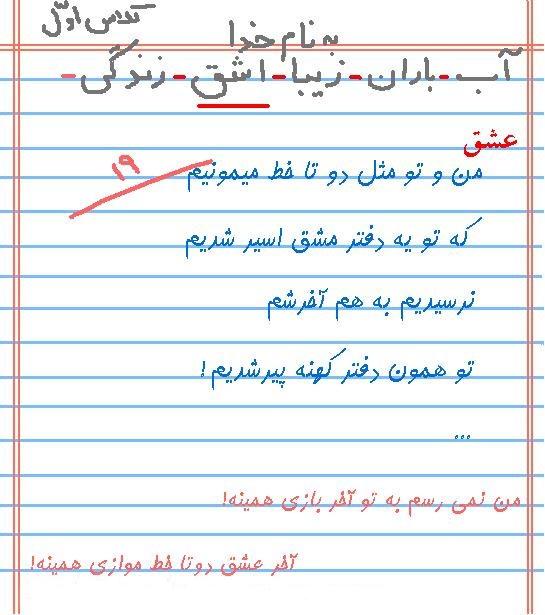 کلاس اوّل
به نام خدا
آب - باران - زیبا - اشق - زندگی -
عشق
۱۹
من و تو مثل دو تا خط میمونیم
که تو یه دفتر مشق اسیر شدیم
نرسیدیم به هم آخرشم
تو همون دفتر کهنه پیرشدیم!
...
من نمی رسم به تو آخر بازی همینه!
آخر عشق دوتا خط موازی همینه!